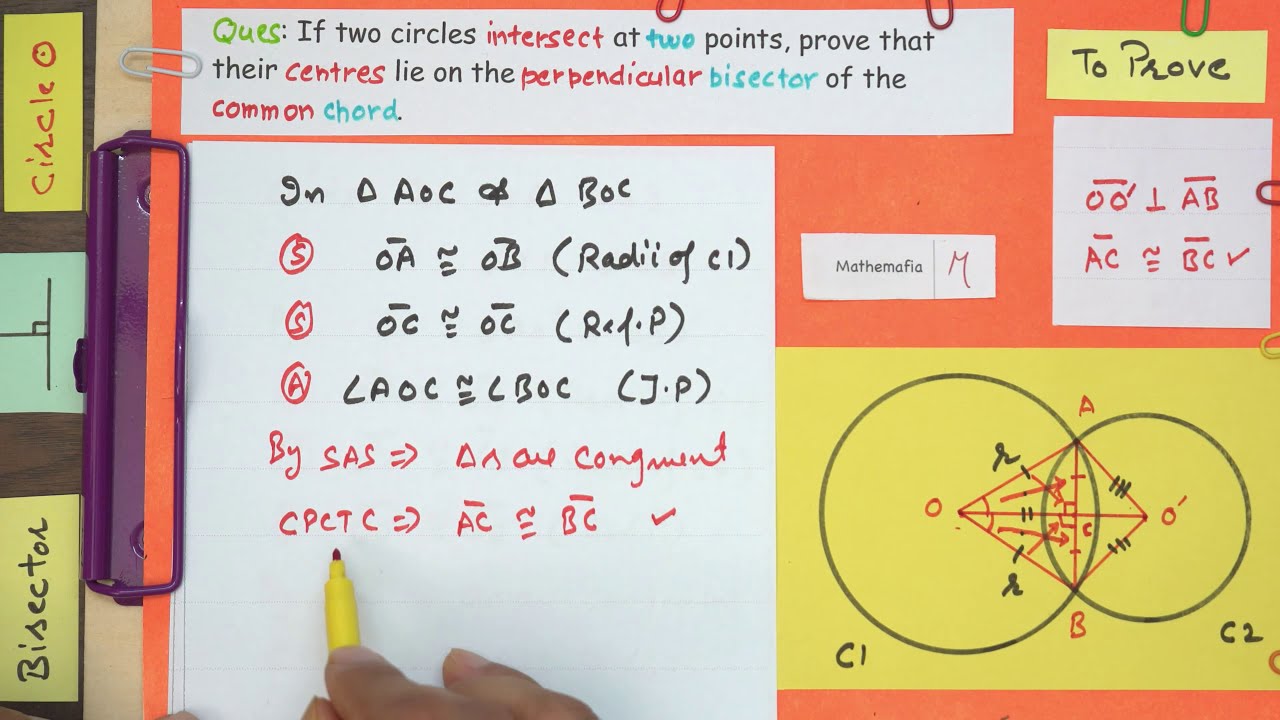 Circle
Bisector
Ques: If two circles intersect at two points, prove that
their centres lie on the perpendicular bisector of the
common chord.
To Prove
OO' ⊥ AB
AC ≅ BC ✓
Mathemafia M
In Δ AOC & Δ BOC
S OA ≅ OB (Radii of C1)
S OC ≅ OC (Ref.P)
A ∠AOC ≅ ∠BOC (J.P)
By SAS ⇒ Δs are congruent
CPCTC ⇒ AC ≅ BC ✓
A
r
O
C
O'
r
B
C1
C2